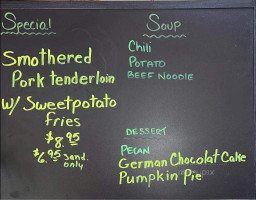 Special
Smothered
Pork tenderloin
w/ Sweetpotato
fries
$8.95
$6.95 Sand. only
Soup
Chili
Potato
Beef Noodle
Dessert
Pecan
German Chocolat Cake
Pumpkin Pie